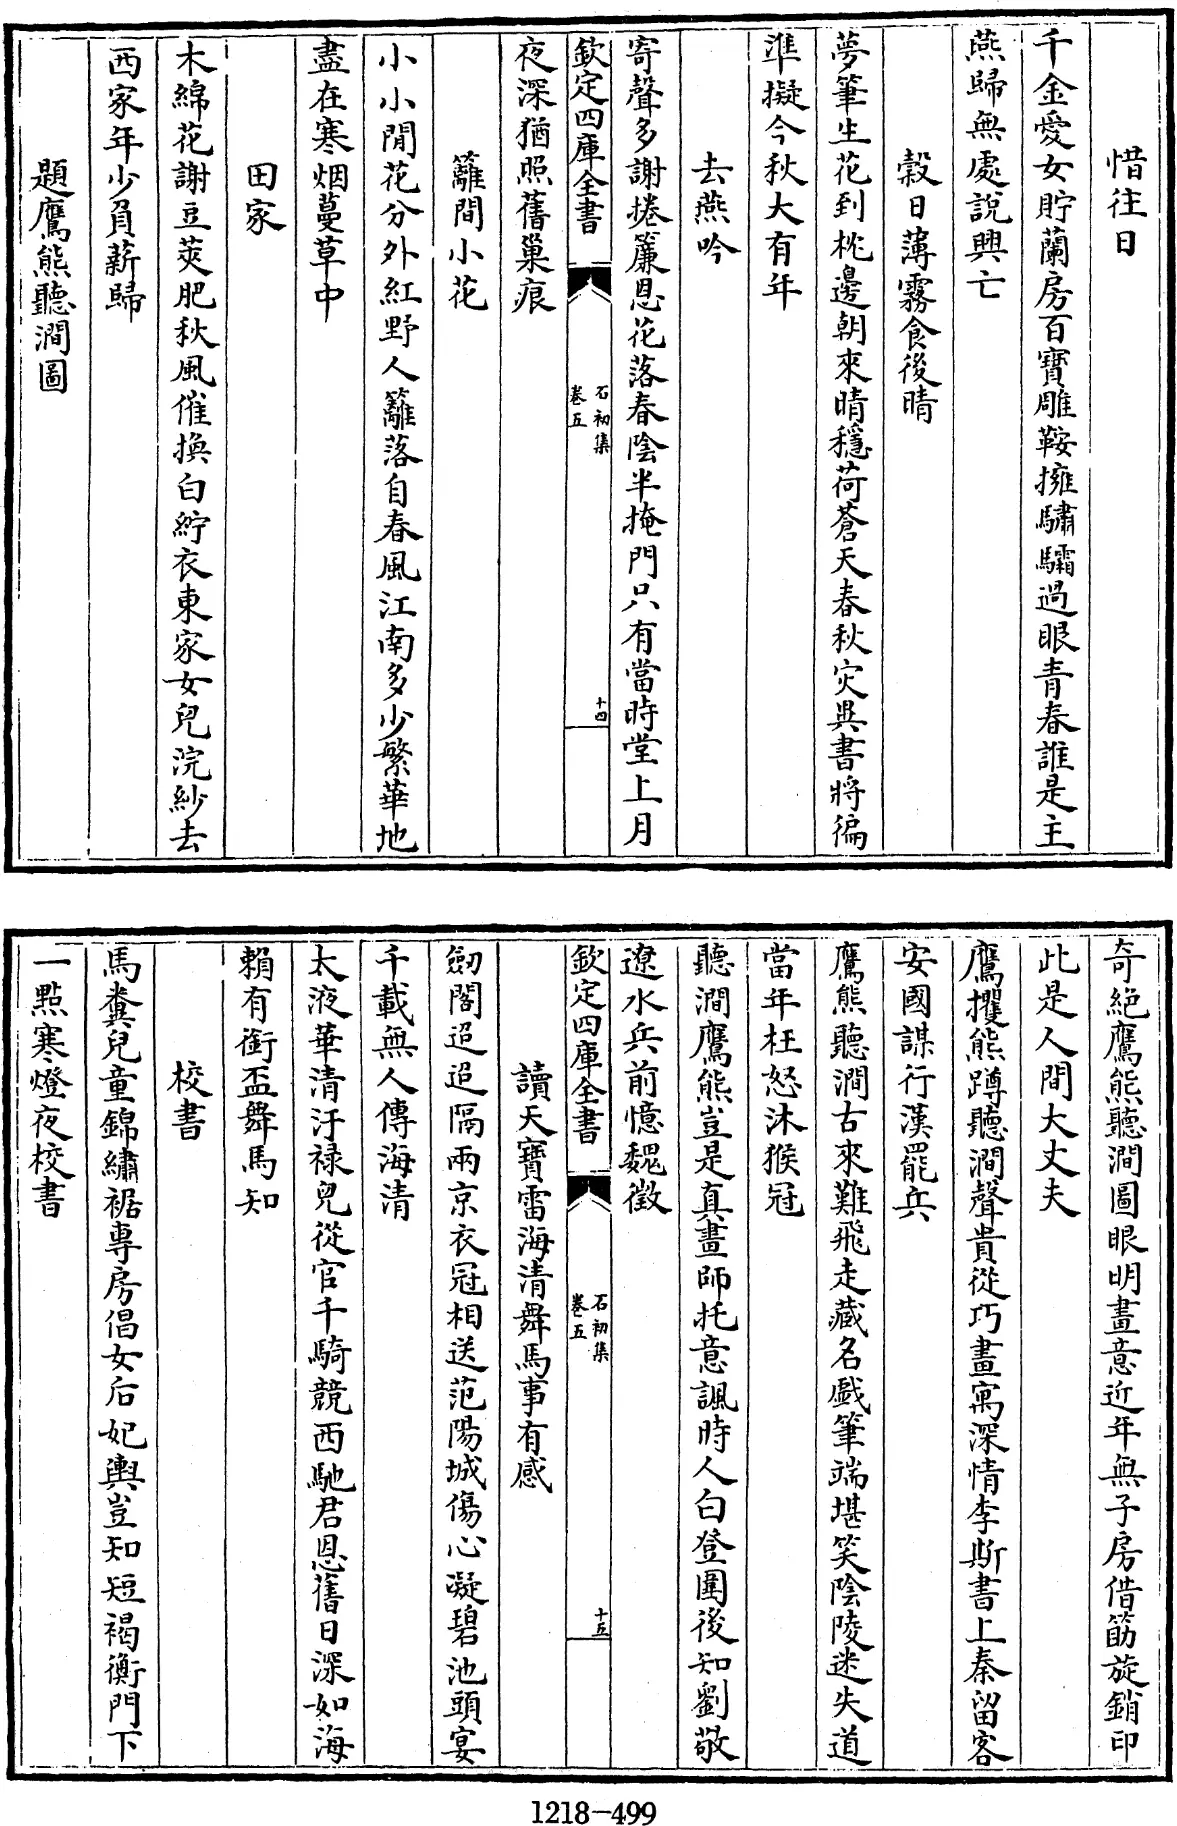 惜往日
千金愛女貯蘭房百寶雕鞍擁驌驦過眼青春誰是主
燕歸無處說興亡
穀日薄霧食後晴
夢筆生花到枕邊朝來晴穩荷蒼天春秋灾異書將徧
準擬今秋大有年
去燕吟
寄聲多謝捲簾恩花落春陰半掩門只有當時堂上月
欽定四庫全書
石初集
卷五
十四
夜深猶照舊巢痕
籬間小花
小小閒花分外紅野人籬落自春風江南多少繁華地
盡在寒烟蔓草中
田家
木綿花謝豆莢肥秋風催換白紵衣東家女兒浣紗去
西家年少負薪歸
題鷹熊聽澗圖
奇絕鷹熊聽澗圖眼明畫意近年無子房借筯旋銷印
此是人間大丈夫
鷹攫熊蹲聽澗聲貴從巧畫寓深情李斯書上秦留客
安國謀行漢罷兵
鷹熊聽澗古來難飛走藏名戲筆端堪笑陰陵迷失道
當年枉怒沐猴冠
聽澗鷹熊豈是真畫師托意諷時人白登圍後知劉敬
遼水兵前憶魏徵
欽定四庫全書
石初集
卷五
十五
讀天寶雷海清舞馬事有感
劒閣迢迢隔兩京衣冠相送范陽城傷心凝碧池頭宴
千載無人傳海清
太液華清汙禄兒從官千騎競西馳君恩舊日深如海
賴有銜盃舞馬知
校書
馬糞兒童錦繡裾專房倡女后妃輿豈知短褐衡門下
一點寒燈夜校書
1218-499